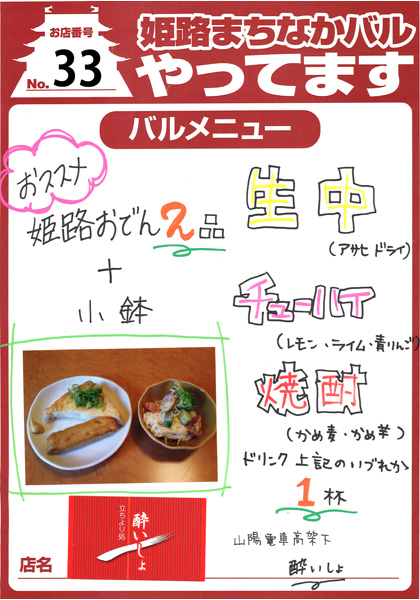 お店番号
No. 33
姫路まちなかバル
やってます
バルメニュー
おススメ
姫路おでん2品
+
小鉢
生中
(アサヒドライ)
チューハイ
(レモン・ライム・青りんご)
焼酎
(かめ麦・かめ芋)
ドリンク上記のいづれか
1杯
立ちより処
酔いしょ
山陽電車高架下
店名
酔いしょ